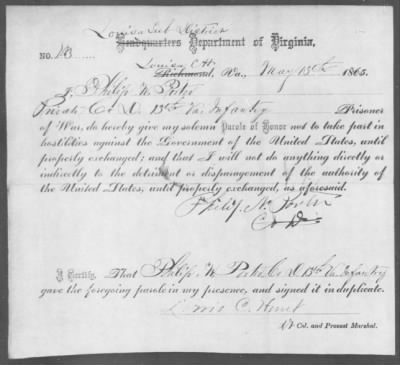 Louisa Sub District
Headquarters Department of Virginia,
No. Louisa C.H.
Richmond, Va., May 15th 1865.
I, Philip W. Porter
Private Co D. 13th Va. Infantry Prisoner
of War, do hereby give my solemn Parole of Honor not to take part in
hostilities against the Government of the United States, until
properly exchanged; and that I will not do anything directly or
indirectly to the detriment or disparagement of the authority of
the United States, until properly exchanged, as aforesaid.
Philip W. Porter
Co D
I Certify, That Philip W Porter Co D 13th Va. Infantry
gave the foregoing parole in my presence, and signed it in duplicate.
C.
Lt Col. and Provost Marshal.